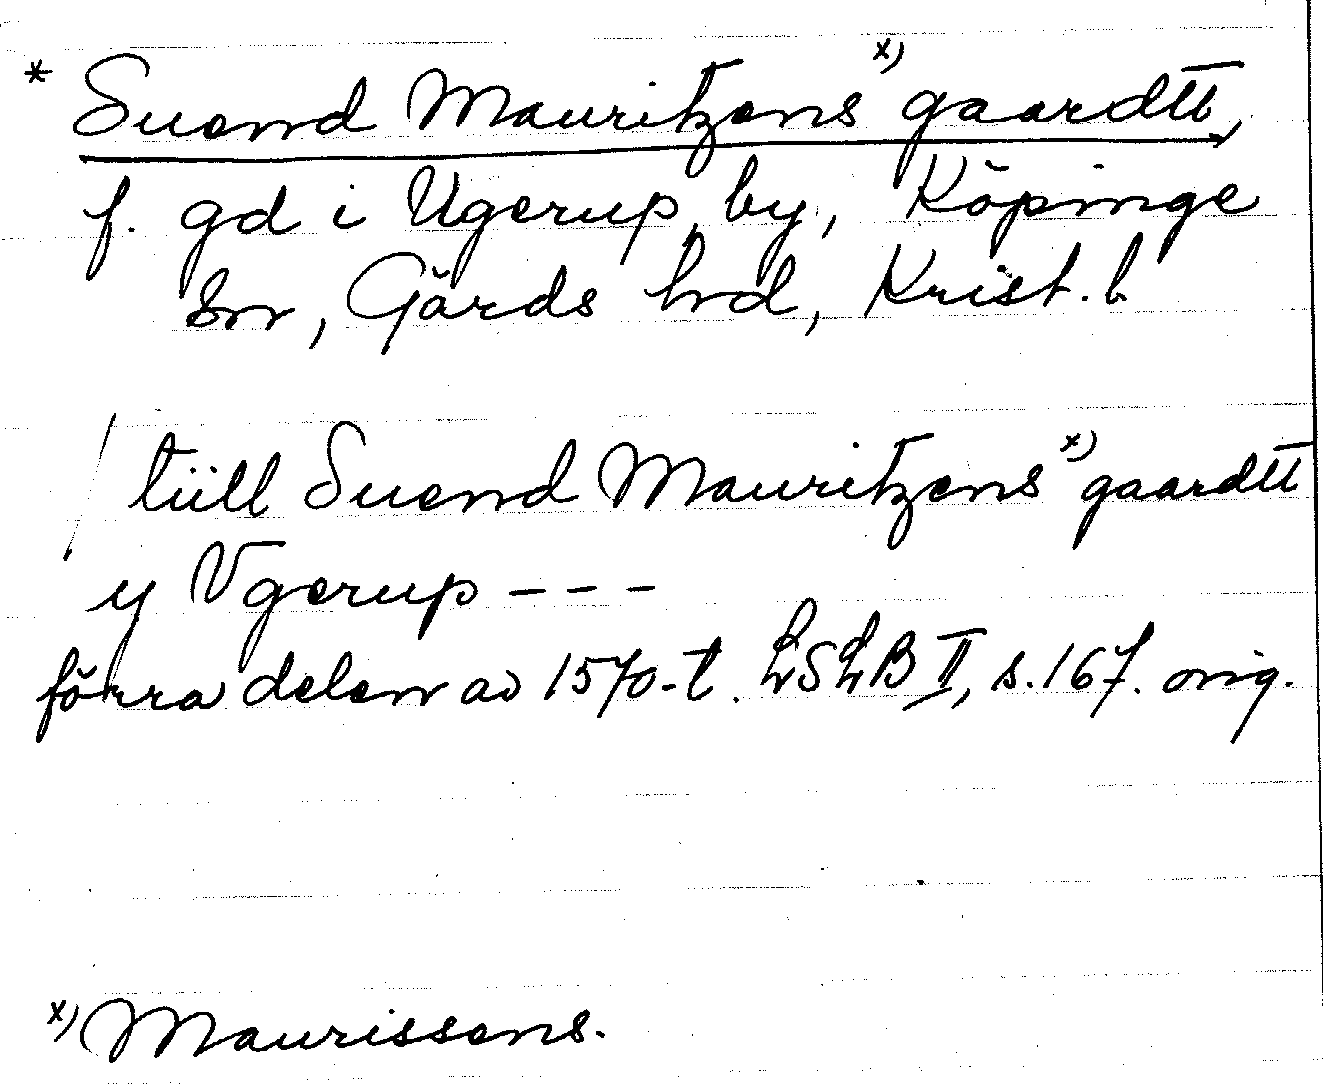 * Suend Mauritzens x) gaardtt,
f. gd i Ugerup by, Köpinge
sn, Gärds hrd, Krist. l.
/ tiill Suend Mauritzens x) gaardtt
y Vgerup - - -
förra delen av 1570-t. LSLB II, s. 167. orig.
x) Maurissens.